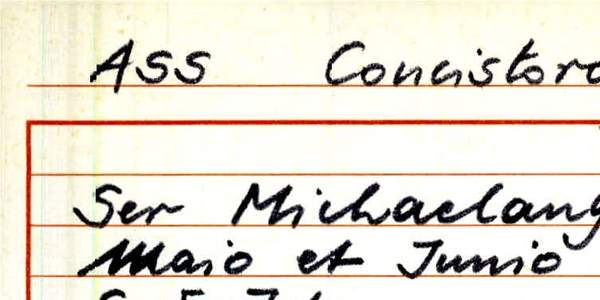 ASS Concistoro
Ser Michaelang
Maio et Junio